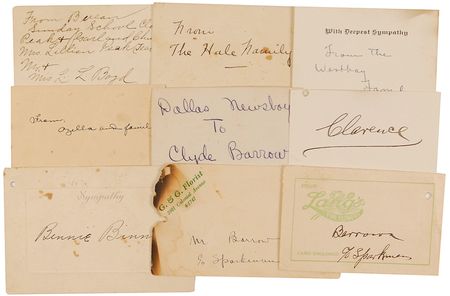 From Berean
Sunday School Cla
Peak & Garland Chu
Mrs. Lillian Peak Tea
Mr. &
Mrs. L. L. Boyd
From
The Hale Family
With Deepest Sympathy
From the
Westbay
From
Ozella and famil
Dallas Newsboy
To
Clyde Barrow
Clarence
Sympathy
Bennie Binn
G. & G. Florist
Mr Barrow
% Sparkman
Lang's
Barrows
% Sparkman